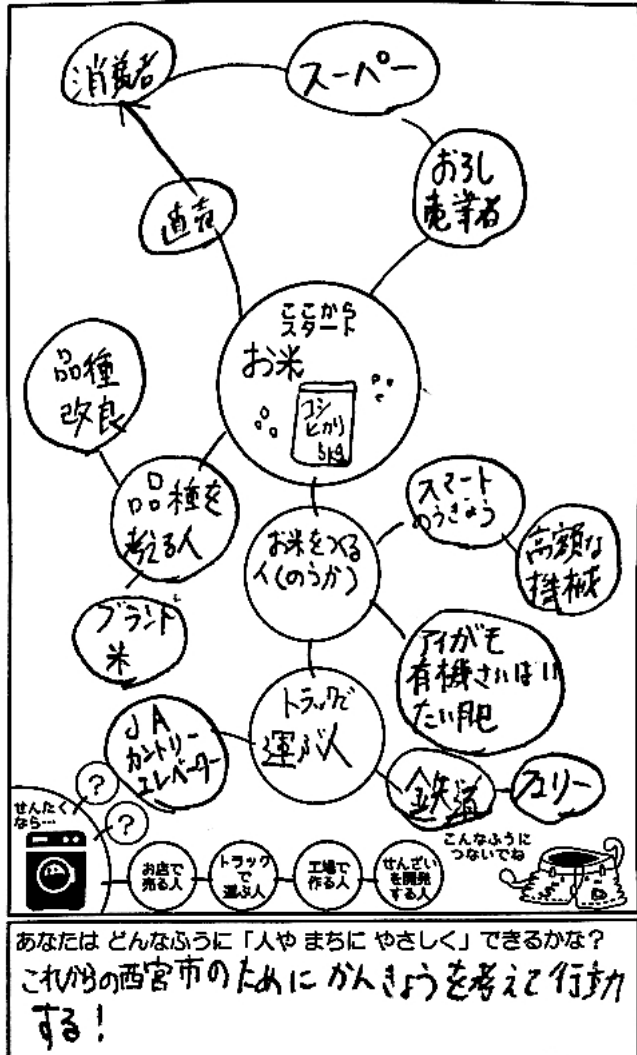 消費者
スーパー
おろし
売業者
直売
ここから
スタート
お米
コシ
ヒカリ
5kg
品種
改良
品種を
考える人
ブランド
米
お米をつくる
人(のうか)
スマート
のうぎょう
高額な
機械
アイガモ
有機さいばい
たい肥
トラックで
運ぶ人
JA
カントリー
エレベーター
鉄道
フェリー
せんたく
なら…
?
?
お店で
売る人
トラック
で
運ぶ人
工場で
作る人
せんざい
を開発
する人
こんなふうに
つないでね
あなたは どんなふうに「人や まちに やさしく」できるかな?
これからの西宮市のために かんきょうを考えて行動
する!